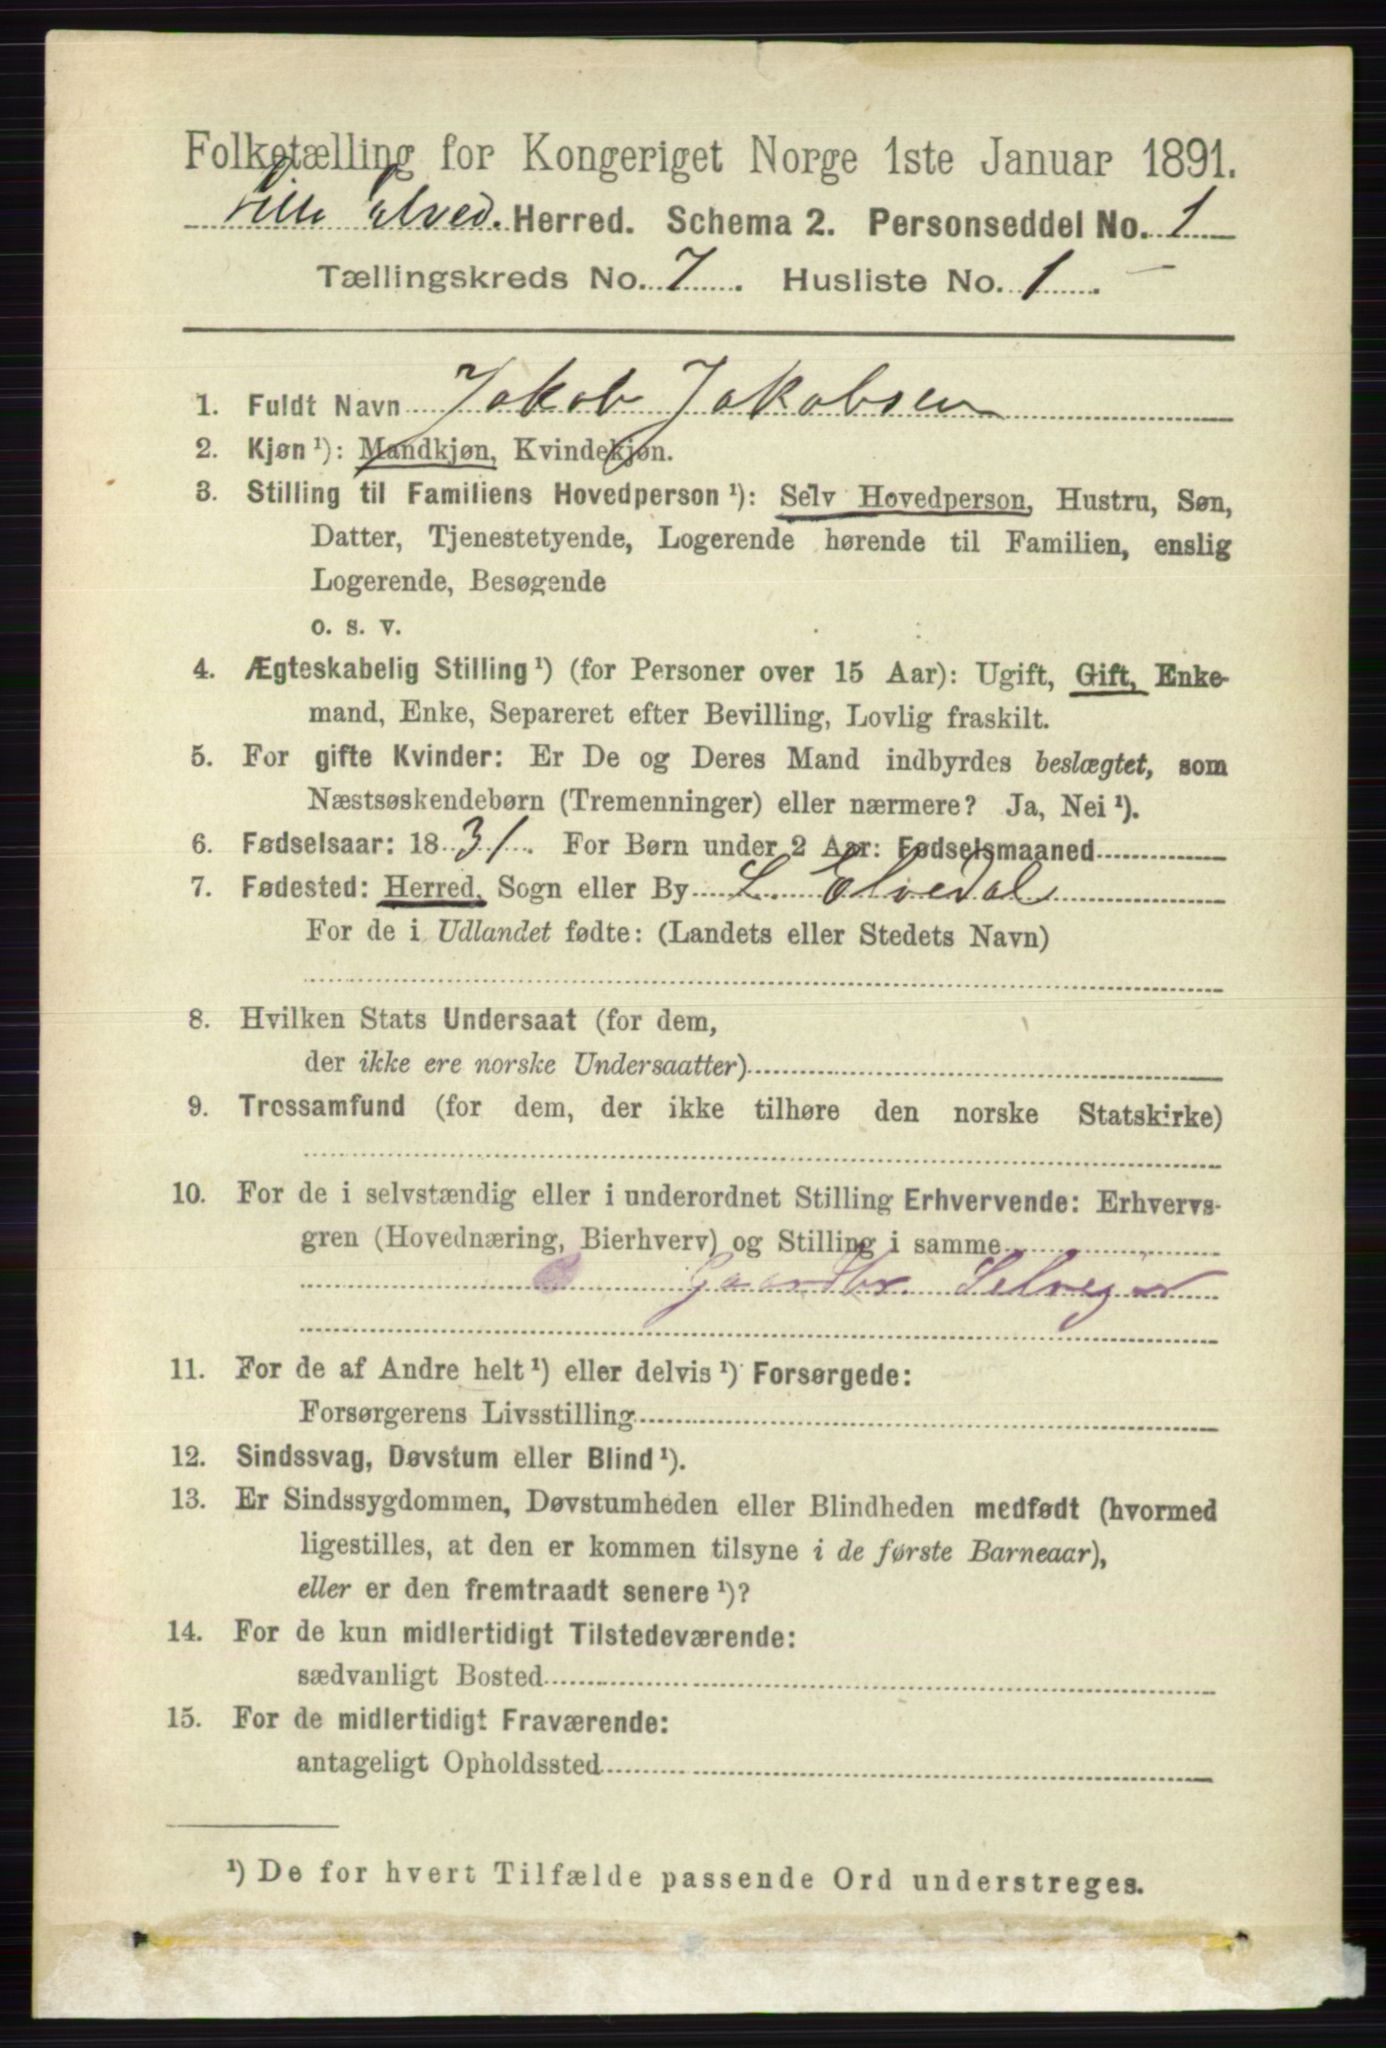 Folketælling for Kongeriget Norge 1ste Januar 1891.
Lille Elved. Herred. Schema 2. Personseddel No. 1
Tællingskreds No. 7. Husliste No. 1.
1. Fuldt Navn Jakob Jakobsen
2. Kjøn ¹): Mandkjøn, Kvindekjøn.
3. Stilling til Familiens Hovedperson ¹): Selv Hovedperson, Hustru, Søn,
Datter, Tjenestetyende, Logerende hørende til Familien, enslig
Logerende, Besøgende
o. s. v.
4. Ægteskabelig Stilling ¹) (for Personer over 15 Aar): Ugift, Gift, Enke-
mand, Enke, Separeret efter Bevilling, Lovlig fraskilt.
5. For gifte Kvinder: Er De og Deres Mand indbyrdes beslægtet, som
Næstsøskendebørn (Tremenninger) eller nærmere? Ja, Nei ¹).
6. Fødselsaar: 1831. For Børn under 2 Aar: Fødselsmaaned
7. Fødested: Herred, Sogn eller By L. Elvedal
For de i Udlandet fødte: (Landets eller Stedets Navn)
8. Hvilken Stats Undersaat (for dem,
der ikke ere norske Undersaatter)
9. Trossamfund (for dem, der ikke tilhøre den norske Statskirke)
10. For de i selvstændig eller i underordnet Stilling Erhvervende: Erhvervs-
gren (Hovednæring, Bierhverv) og Stilling i samme
Gaardbr. Selveier
11. For de af Andre helt ¹) eller delvis ¹) Forsørgede:
Forsørgerens Livsstilling
12. Sindssvag, Døvstum eller Blind ¹).
13. Er Sindssygdommen, Døvstumheden eller Blindheden medfødt (hvormed
ligestilles, at den er kommen tilsyne i de første Barneaar),
eller er den fremtraadt senere ¹)?
14. For de kun midlertidigt Tilstedeværende:
sædvanligt Bosted
15. For de midlertidigt Fraværende:
antageligt Opholdssted
¹) De for hvert Tilfælde passende Ord understreges.